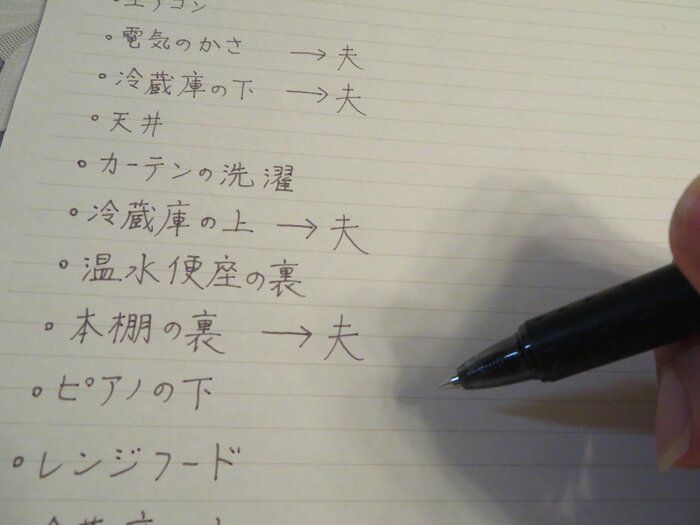 ・エアコン
・電気のかさ → 夫
・冷蔵庫の下 → 夫
・天井
・カーテンの洗濯
・冷蔵庫の上 → 夫
・温水便座の裏
・本棚の裏 → 夫
・ピアノの下
・レンジフード